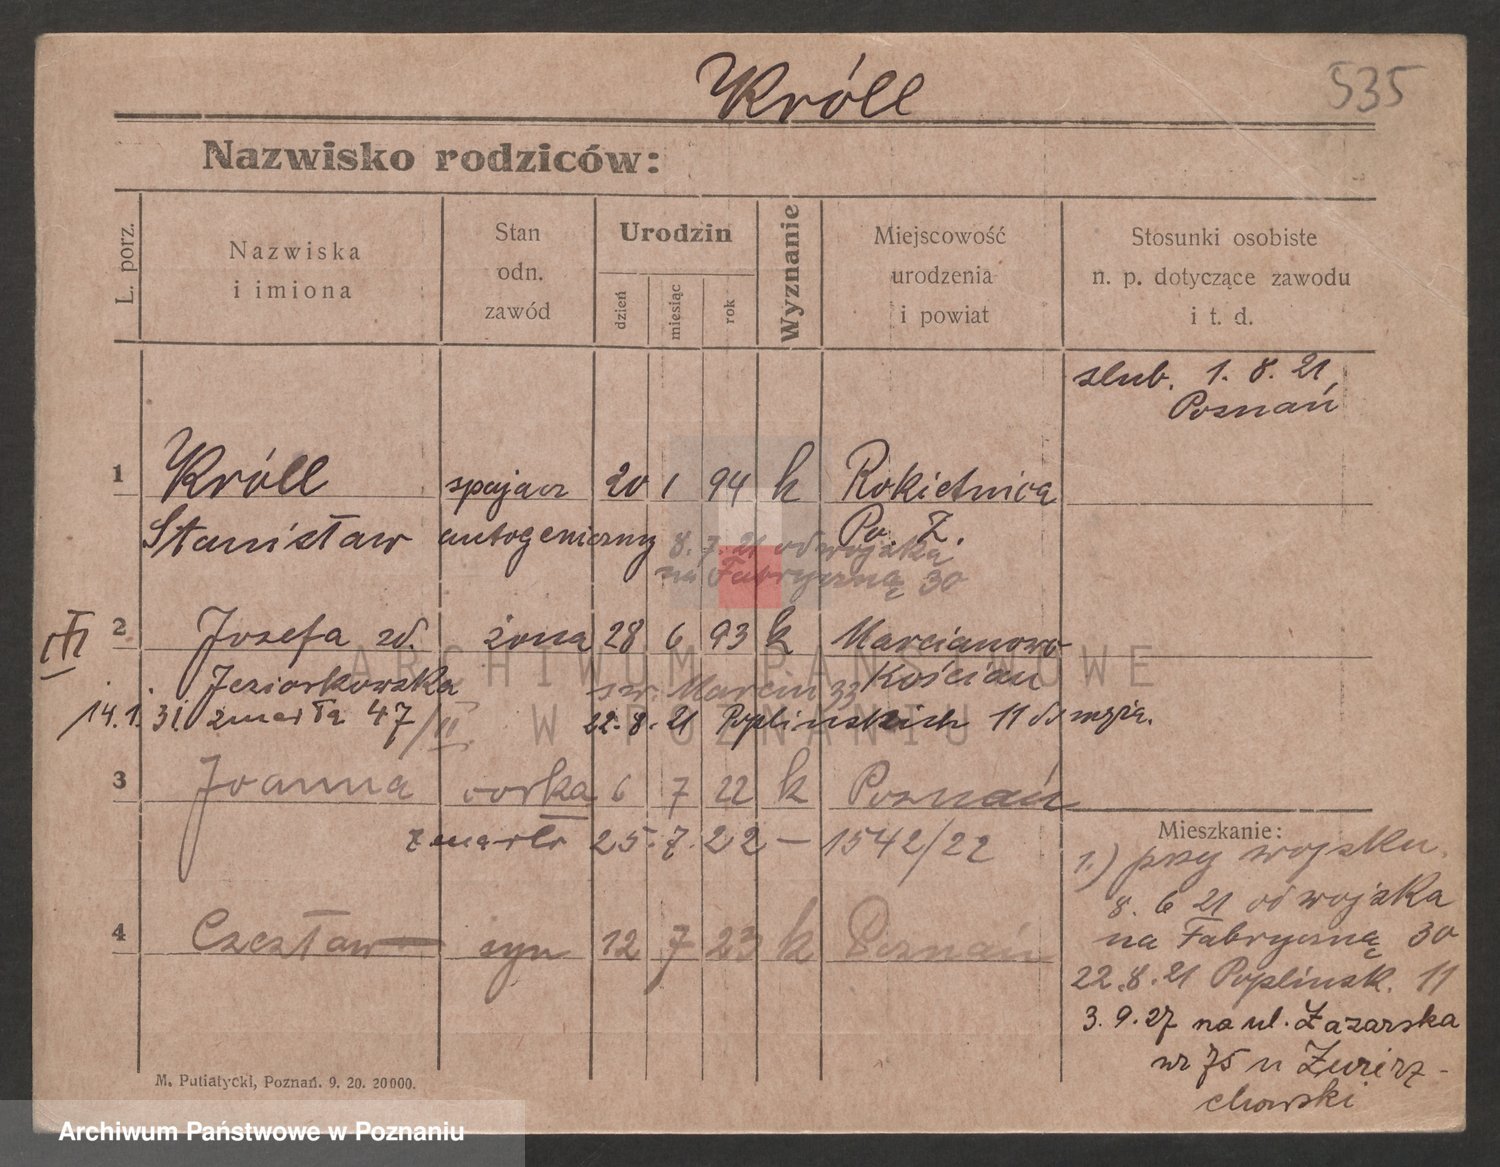 Króll
535
Nazwisko rodziców:
L. porz.
Nazwiska
i imiona
Stan
odn.
zawód
Urodzin
dzień
miesiąc
rok
Wyznanie
Miejscowość
urodzenia
i powiat
Stosunki osobiste
n. p. dotyczące zawodu
i t. d.
slub. 1. 8. 21
Poznań
1 Króll spajacz 20 1 94 k Rokietnica
Stanisław autogeniczny Po. Z.
8. 7. 21 od wojska
na Fabryczną 30
2 Józefa zd. żona 28 6 93 k Marcianowo
Jeziorkowska Kościan
św. Marcin 33
14. 1. 31. zmarła 47/II 22. 8. 21 Poplińskich 11
3 Joanna córka 6 7 22 k Poznań
zmarła 25. 7. 22 — 1542/22
4 Czesław syn 12 7 23 k Poznań
Mieszkanie:
1.) przy wojsku.
8. 6 21 od wojska
na Fabryczną 30
22. 8. 21 Poplinsk. 11
3. 9. 27 na ul. Łazarska
nr 75 u Zwierz-
chowski
M. Putiatycki, Poznań. 9. 20. 20000.
ARCHIWUM PAŃSTWOWE
W POZNANIU
Archiwum Państwowe w Poznaniu